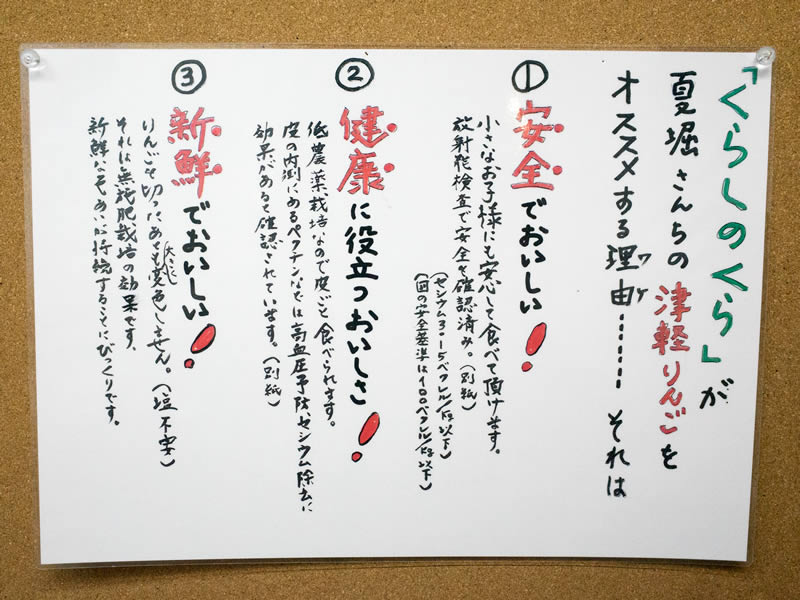 「くらしのくら」が
夏堀さんちの津軽りんごを
オススメする理由ワケ……… それは
① 安全でおいしい!
小さなお子様にも安心して食べて頂けます。
放射能検査で安全を確認済み。(別紙)
(セシウム30~5ベクレル/kg以下)
(国の安全基準は100ベクレル/kg以下)
② 健康に役立つおいしさ!
低農薬栽培なので皮ごと食べられます。
皮の内側にあるペクチンなどは高血圧予防、セシウム除去に
効果があると確認されています。(別紙)
③ 新鮮でおいしい!
りんごを切ったあとも変色しません。(塩不要)
それは無施肥栽培の効果です。
新鮮なそのあいが持続することにびっくりです。